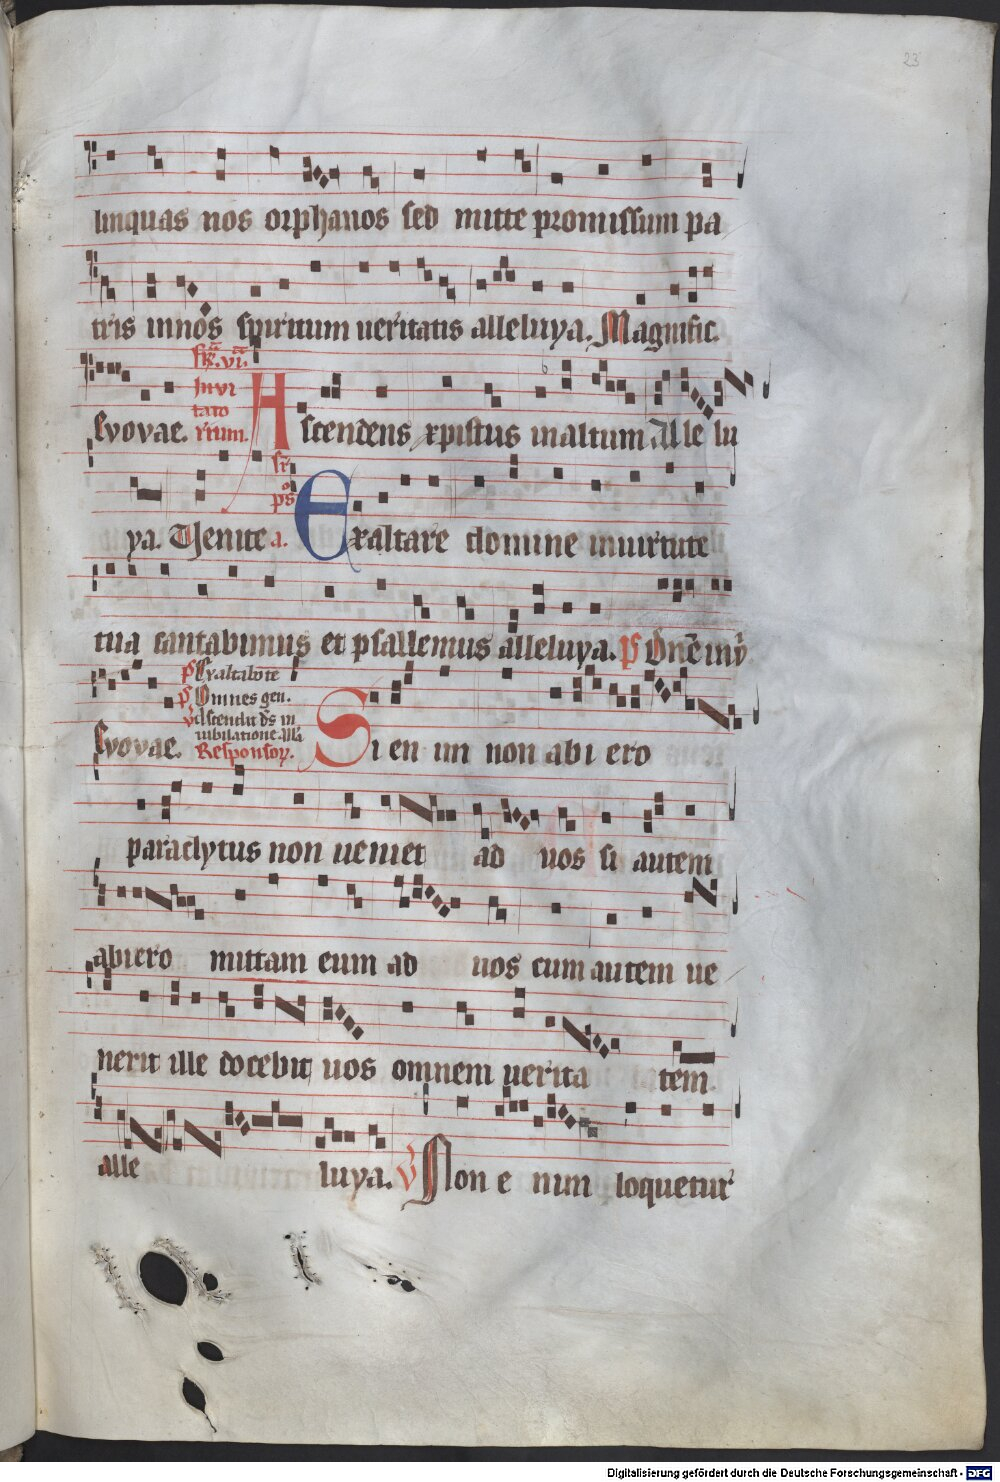 23
linquas nos orphanos sed mitte promissum pa
tris in nos spiritum ueritatis alleluya. Magnific.
Invi
tato
rium.
Evovae. Ascendens xpistus in altum Alle lu
ya. Uenite a. Exaltare domine in uirtute
tua cantabimus et psallemus alleluya. ps Dne in v
ps Exaltabo te
ps Omnes gen.
v Ascendit ds in
iubilatione. alla
Evovae. Responsor. Si en im non abi ero
paraclytus non ueniet ad uos si autem
abiero mittam eum ad uos cum autem ue
nerit ille docebit uos omnem uerita tem
alle luya. v Non e nim loquetur
Digitalisierung gefördert durch die Deutsche Forschungsgemeinschaft - DFG